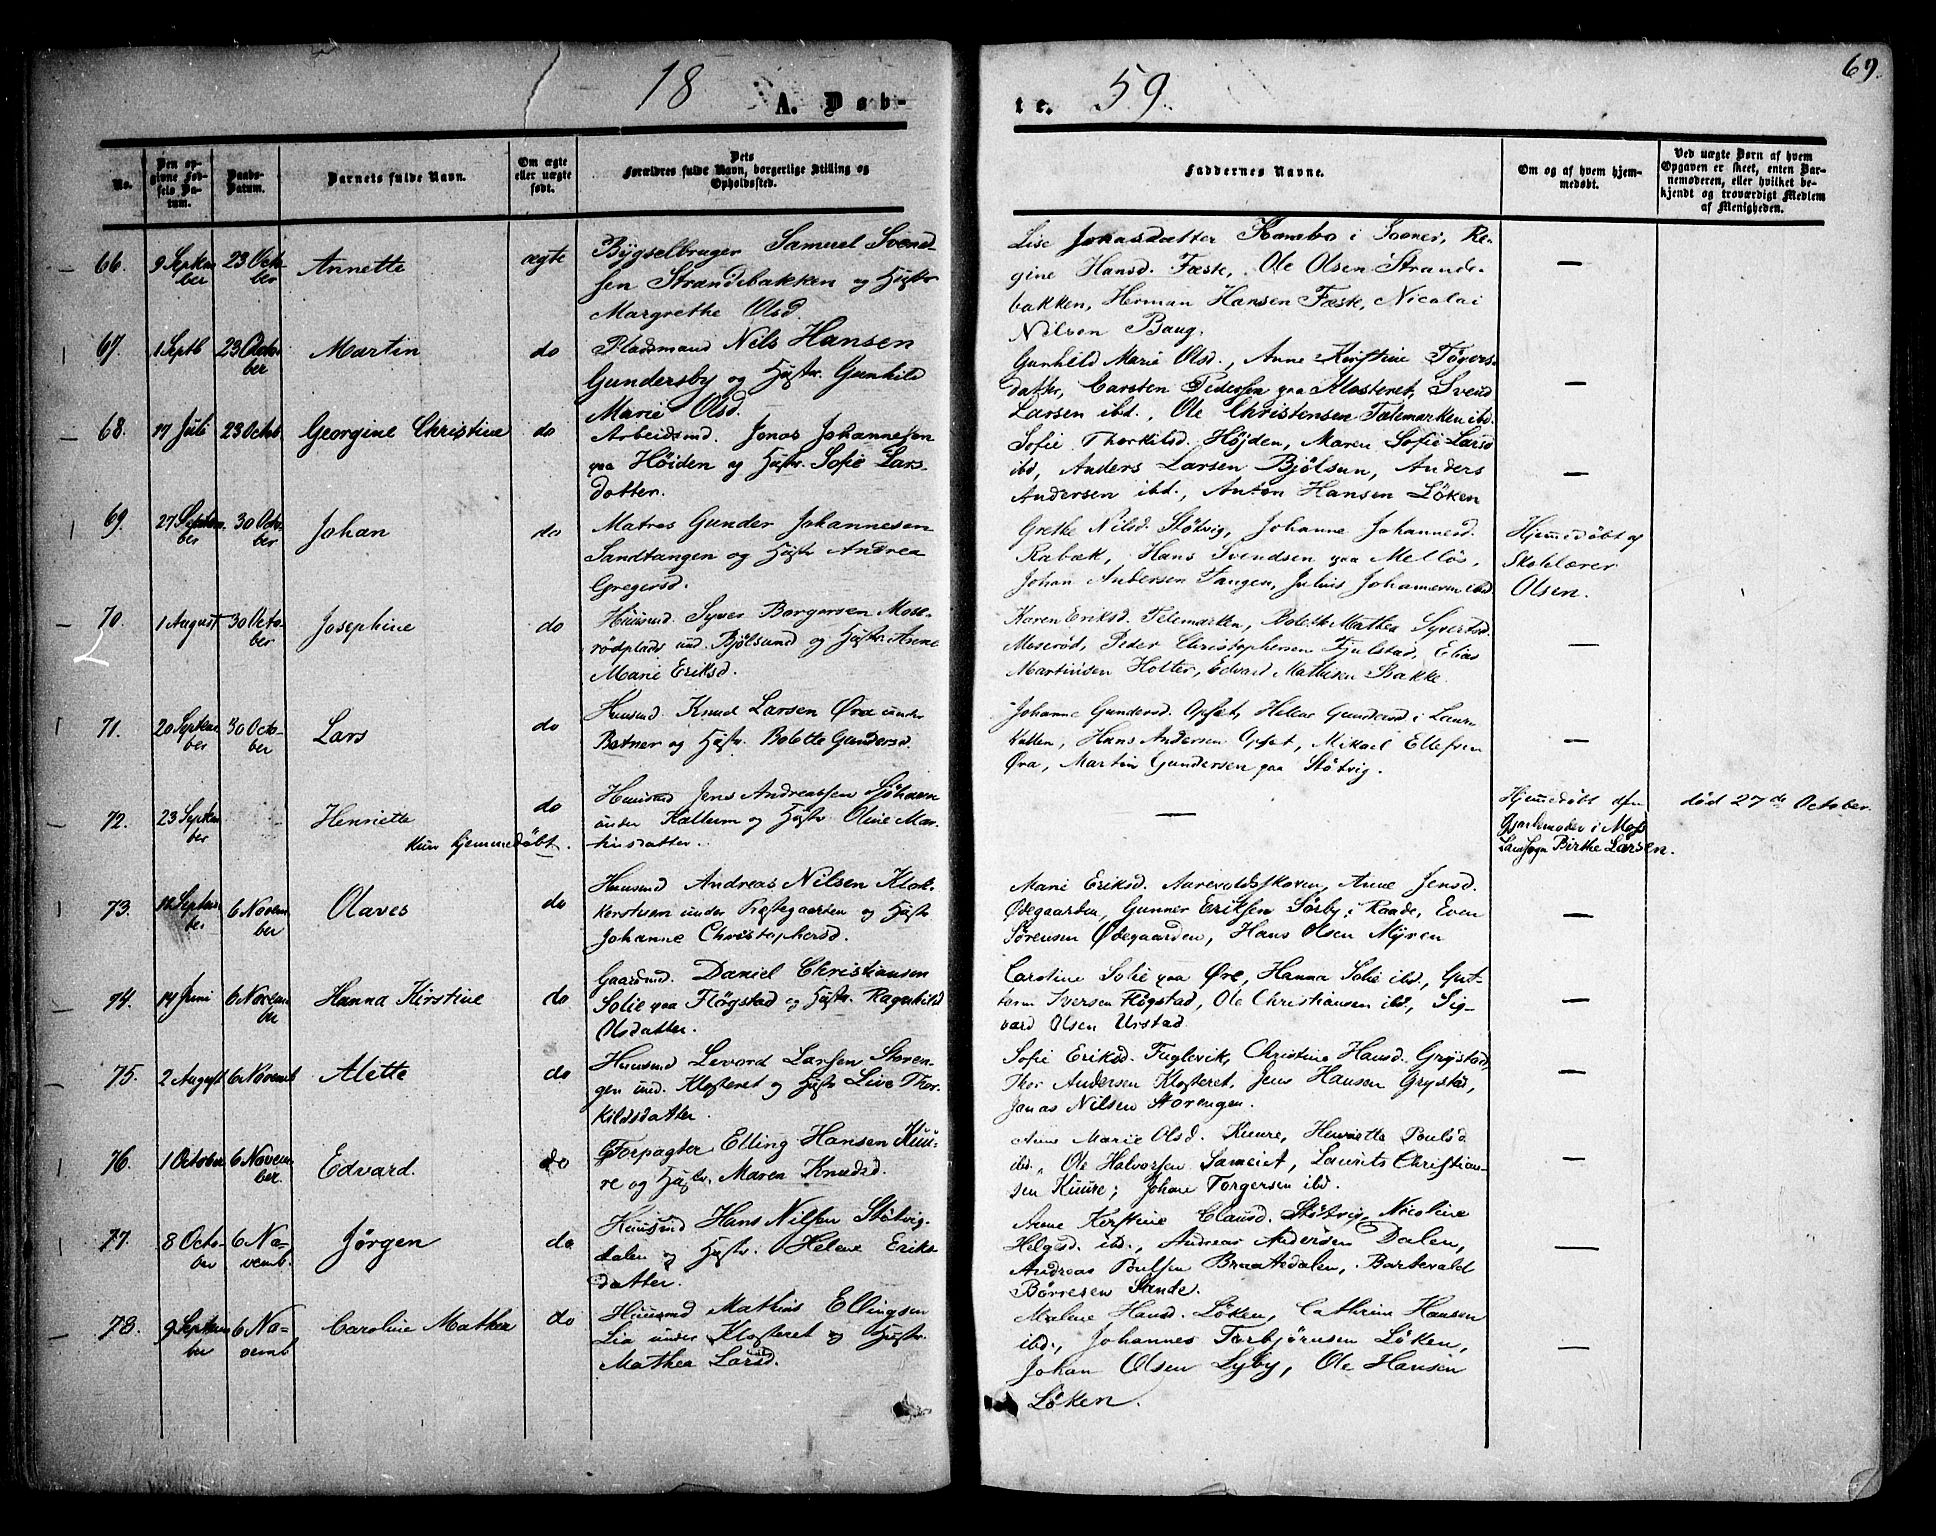 18 59.
69.
A. Døb-
te.
No.
Den op-
givne Fød-
sels Da-
tum.
Daabs-
Datum.
Barnets fulde Navn.
Om ægte
eller uægte
født.
Dets
Forældres fulde Navn, borgerlige Stilling og
Opholdssted.
Faddernes Navne.
Om og af hvem hjem-
medøbt.
Ved uægte Børn af hvem
Opgaven er skeet, enten Bar-
nemoderen, eller hvilket be-
kjendt og troværdigt Medlem
af Menigheden.
66. 9 Septem
ber
23 Octo
ber
Annette
ægte
Bÿgselbruger Samuel Svend-
sen Strandebakken og Hustr
Margrethe Olsd.
Lise Jonasdatter Kambo i Soner, Re-
gine Hansd. Fæste, Ole Olsen Strande-
bakken, Herman Hansen Fæste, Nicolai
Nilsen Baug.
—
67. 1 Septb 23 Octo
ber
Martin
do
Pladsmand Nils Hansen
Gundersby og Hustr. Gunhild
Marie Olsd.
Gunhild Marie Olsd., Anne Kirstine Tøgers-
datter, Carsten Pedersen paa Klosteret, Svend
Larsen ibd., Ole Christensen Tælemarken ibd.
—
68. 17 Juli 23 Octob
Georgine Christine
do
Arbeidsmd. Jonas Johannesen
paa Höiden og Hustr. Sofie Lars-
datter.
Sofie Thorkilsd. Höjden, Maren Sofie Larsd
ibd, Anders Larsen Bjölsun, Anders
Andersen ibd., Anton Hansen Löken
—
69. 27 Septem
ber
30 Octo
ber
Johan
do
Matros Gunder Johannesen
Sandtangen og Hustr Andrea
Gregersd.
Grethe Nilsd. Stötvig, Johanne Johannesd.
Rabæk, Hans Svendsen paa Mellös,
Johan Andersen Tangen, Julius Johannesen ibd
Hjemmedöbt af
Skolelærer
Olsen.
70. 1 August 30 Octo
ber
Josephine
do
Huusmd. Syver Borgersen Mose-
rödplads und. Bjölsund og Hustr Anne
Marie Eriksd.
Karen Eriksd. Telemarken, Mathea Syvertsd.
Moseröd, Peder Christophersen Fjulstad, Elias
Martinsen Holter, Edvard Mathisen Bakke.
—
71. 20 Septem
ber
30 Octo-
ber
Lars
do
Huusmd. Knud Larsen Øra under
Botner og Hustr. Bolette Gundersd.
Johanne Gundersd. Opsæt, Helene Gundersd i Laur-
kullen, Hans Andersen Opsæt, Mikael Ellefsen
Øra, Martin Gundersen paa Stötvig.
—
72. 23 Septem
ber
Henriette
kun hjemmedöbt.
do
Huusmd Jens Andreassen Sjöhavn
under Kallum og Hustr Oline Mar-
tinsdatter.
—
Hjemmedöbt af
Gjordemoder i Moss
Landsogn Birthe Larsen.
död 27de October.
73. 12 Septem
ber
6 Novem
ber
Olaves
do
Huusmd Andreas Nilsen Klok-
kerstuen under Præstegaarden og Hustr
Johanne Christophersd.
Marie Eriksd. Aarevoldsskoven, Anne Jensd.
Ødegaarden, Gunner Eriksen Sörby i Raade, Even
Sörensen Ødegaarden, Hans Olsen Mÿren
—
74. 14 Juni 6 Novem
ber
Hanna Kirstine
do
Gaardmd. Daniel Christiansen
Solie paa Flögstad og Hustr Ragnhild
Olsdatter.
Caroline Solie paa Øre, Hanna Solie ibd, Gut-
torm Iversen Flögstad, Ole Christiansen ibd, Sig-
vard Olsen Urstad.
—
75. 2 August 6 Novemb
Alette
do
Huusmd Levord Larsen Støren-
gen und. Klosteret og Hustr Live Thor-
kildsdatter.
Sofie Eriksd. Fuglevik, Christine Hansd. Grystad,
Thor Andersen Klosteret, Jens Hansen Grystad,
Jonas Nilsen Storengen.
—
76. 1 October 6 Novem
ber.
Edvard.
do
Forpagter Elling Hansen Kuu-
re og Hustr. Maren Knudsd.
Anne Marie Olsd. Kuure, Henriette Poulsd
ibd., Ole Halvorsen Sameiet, Laurits Christian-
sen Kuure; Johan Torgersen ibd.
—
77. 8 Octo-
ber
6 No-
vemb.
Jørgen
do
Huusmd Hans Nilsen Stötvig-
dalen og Hustr. Helene Eriks-
datter.
Anne Kirstine Clausd. Stötvig, Nicoline
Helgesd. ibd., Andreas Andersen Dalen,
Andreas Poulsen Braatedalen, Bartevald
Börresen Sande.
—
78. 9 Septem
ber
6 No-
vemb
Caroline Mathea
do
Huusmd Mathias Ellingsen
Lia under Klosteret og Hustr.
Mathea Larsd.
Malene Hansd. Löken, Cathrine Hansen
ibd., Johannes Torbjörnsen Löken,
Johan Olsen Lyby, Ole Hansen
Löken.
—